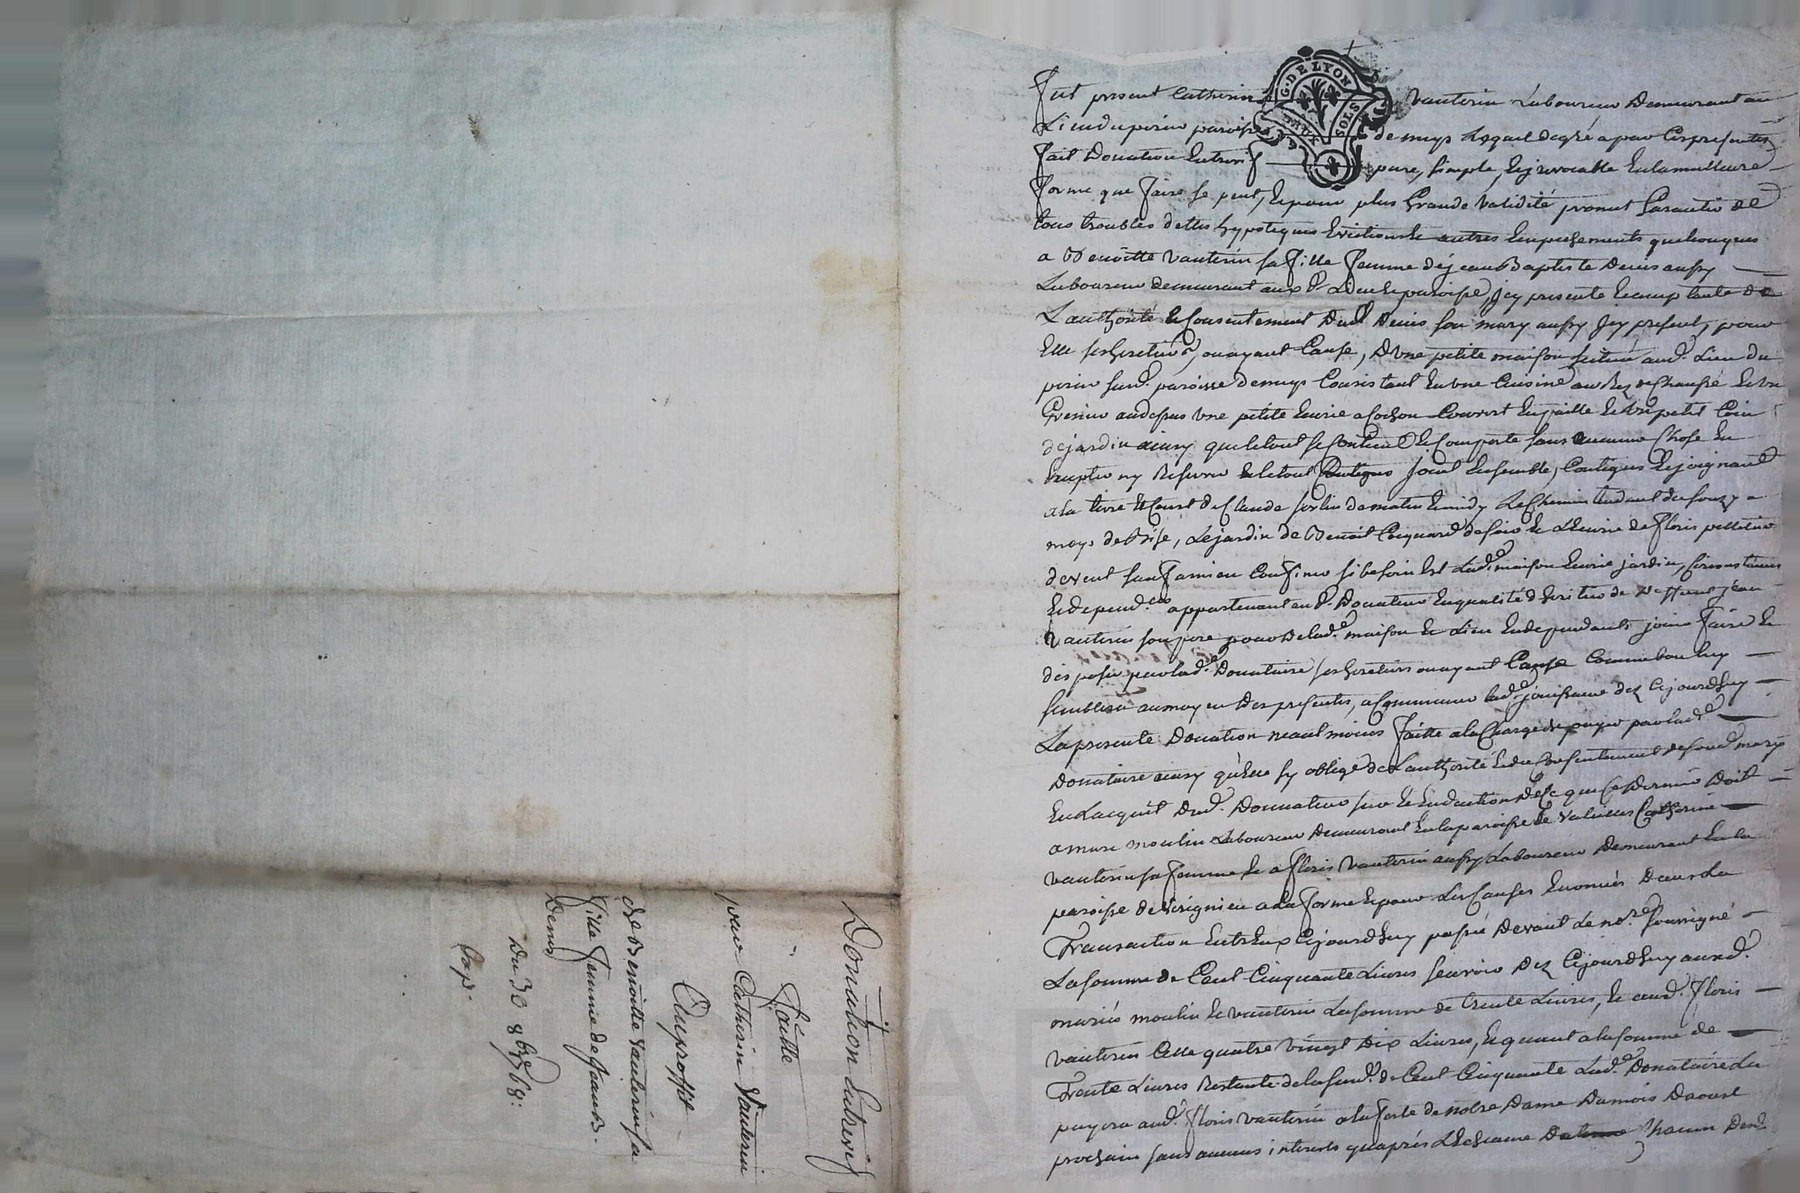 G. DE LYON
DEUX SOLS
Fut present Catherin Vauterin Laboureur Demeurant au
Lieu du perin paroisse de meys Lequel de gré a par Ces presentes
fait Donation Entrevifs pure, simple, Et irrevocable En la meilleure
forme que faire se peut, Et pour plus Grande Validité promet Garantir de
tous troubles dettes hypoteques Evictions Et autres Empechements quelconques
a Benoitte Vauterin sa fille femme de jean Baptiste Denis aussy
Laboureur demeurant aux d. Lieu Et paroisse, Icy presente Et acceptante de
L'authorité Et Consentement Dud. Denis son mary aussy Icy present, pour
Elle ses heritiers, ou ayant Cause, D'Une petite maison scituée aud. Lieu du
perin sud. paroisse de meys Consistant En Une Cuisine au Rez de Chaussé Et Un
Grenier au dessus Une petite Ecurie a Cochon Couvert En paille Et Un petit Coin
de jardin ainsy que le tout se Contient Et Comporte sans aucune Chose En
Excepter ny Reserver Et le tout joint Ensemble, Contigus Et joignant
a la terre Et Court de Claude de matin Et midy Le Chemin tendant de souzy a
meys de Bise, Le jardin de Benoit de soir Et L'Ecurie de Floris pelletier
de vent sauf Confins si besoin Est Lad. maison Ecurie jardin, Circonstances
Et depend.ces appartenant aud. Donateur En qualité d'heritier de Deffunt jean
Vauterin son pere pour De lad. maison Et Lieu En dependants jouir faire Et
disposer par lad. Donataire ses heritiers ou ayant Cause Comme bon luy
semblera au moyen Des presentes, a Commencer lad. jouissance dez Cejourdhuy
La presente Donation neantmoins faitte a la Charge de payer par lad.
Donataire ainsy qu'Elle sy oblige de L'authorité Et du Consentement de sond. mary
En L'acquit Dud. Donnateur sur Et En deduction De Ce que Ce Dernier Doit
a moulin Laboureur Demeurant En la paroisse de Catherine
Vauterin sa femme Et a Floris Vauterin aussy Laboureur Demeurant En la
paroisse de a la forme Et pour Les Causes Enoncées Dans La
Transaction Entre Eux Cejourdhuy passée Devant Le no.re Soussigné
La somme de Cent Cinquante Livres sçavoir Dez Cejourdhuy auxd.
mariés moulin Et Vauterin La somme de trente Livres, Et aud. Floris
Vauterin Celle quatre Vingt Dix Livres, Et quant a la somme de
Trente Livres Restante de la sud. de Cent Cinquante Lad. Donataire La
payera aud. Floris Vauterin a la feste de notre Dame Du mois D'aoust
prochain sans aucuns interests qu'après L'Echeance
Donation Entrevifs
Faitte
par Catherin Vauterin
Au proffit
de Benoitte Vauterin sa
fille femme de Jean B.
Denis
Du 30 8bre 1768:
Exp.